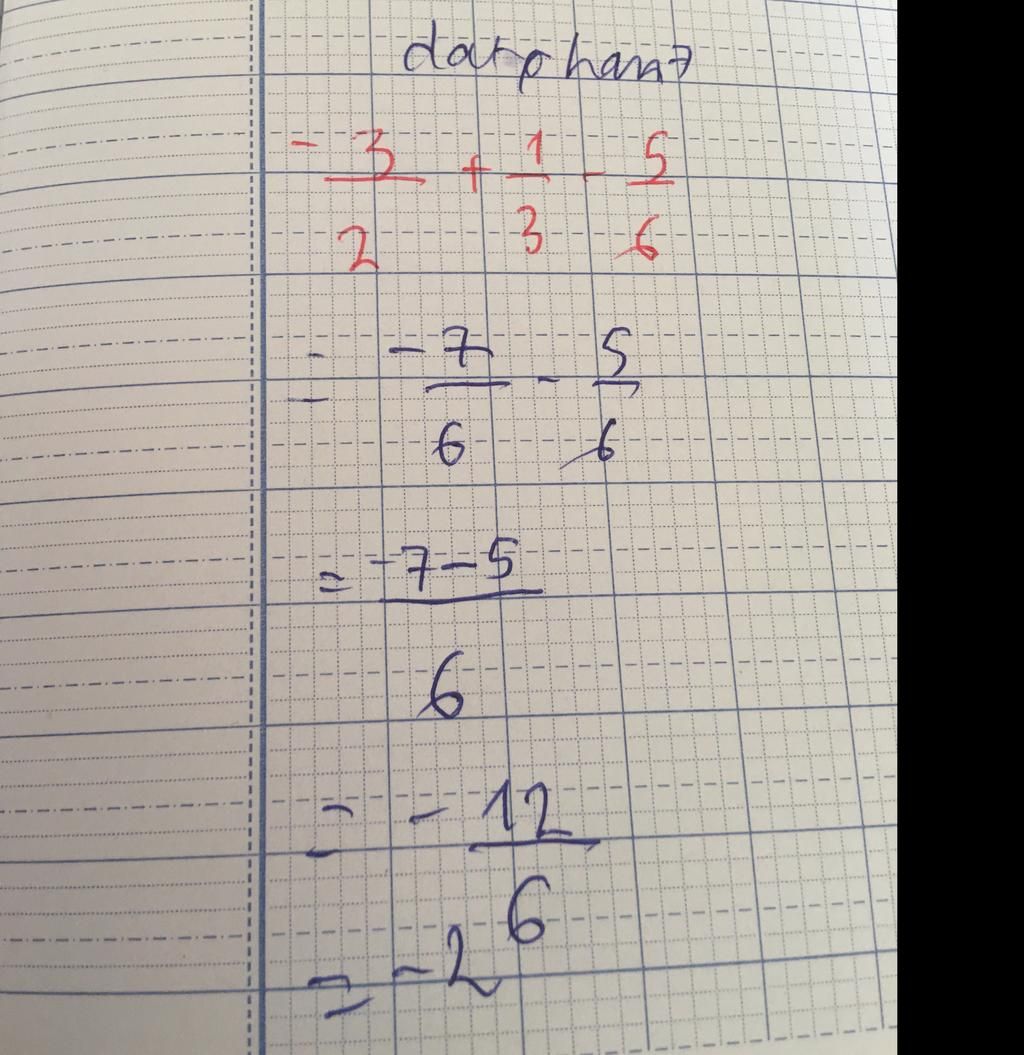 datphan7
- 3/2 + 1/3 - 5/6
= - 7/6 - 5/6
= -7-5/6
= - 12/6
= -2